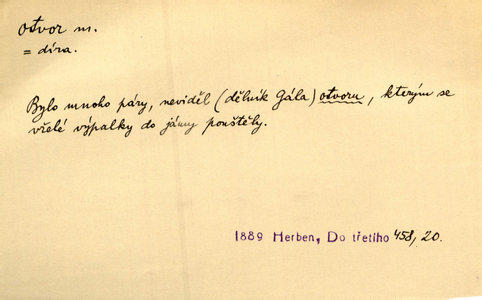 otvor m.
= díra.
Bylo mnoho páry, neviděl (dělník Gála) otvoru, kterým se
vřelé výpalky do jámy pouštěly.
1889 Herben, Do třetího 458, 20.